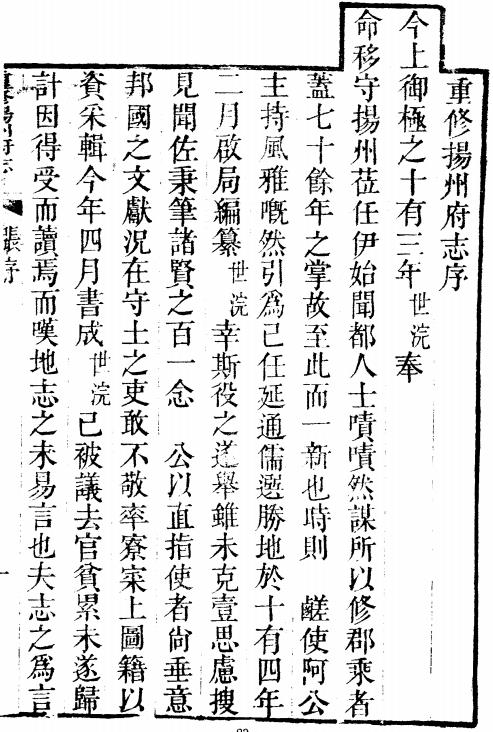 重修揚州府志序
今上御極之十有三年世浣奉
命移守揚州莅任伊始聞都人士嘖嘖然謀所以修郡乘者
蓋七十餘年之掌故至此而一新也時則 鹺使阿公
主持風雅嘅然引為己任延通儒選勝地於十有四年
二月啟局編纂世浣幸斯役之遂舉雖未克壹思慮搜
見聞佐秉筆諸賢之百一念 公以直指使者尚垂意
邦國之文獻況在守土之吏敢不敬率寮寀上圖籍以
資采輯今年四月書成世浣已被議去官貧累未遂歸
計因得受而讀焉而嘆地志之未易言也夫志之為言
張序
一